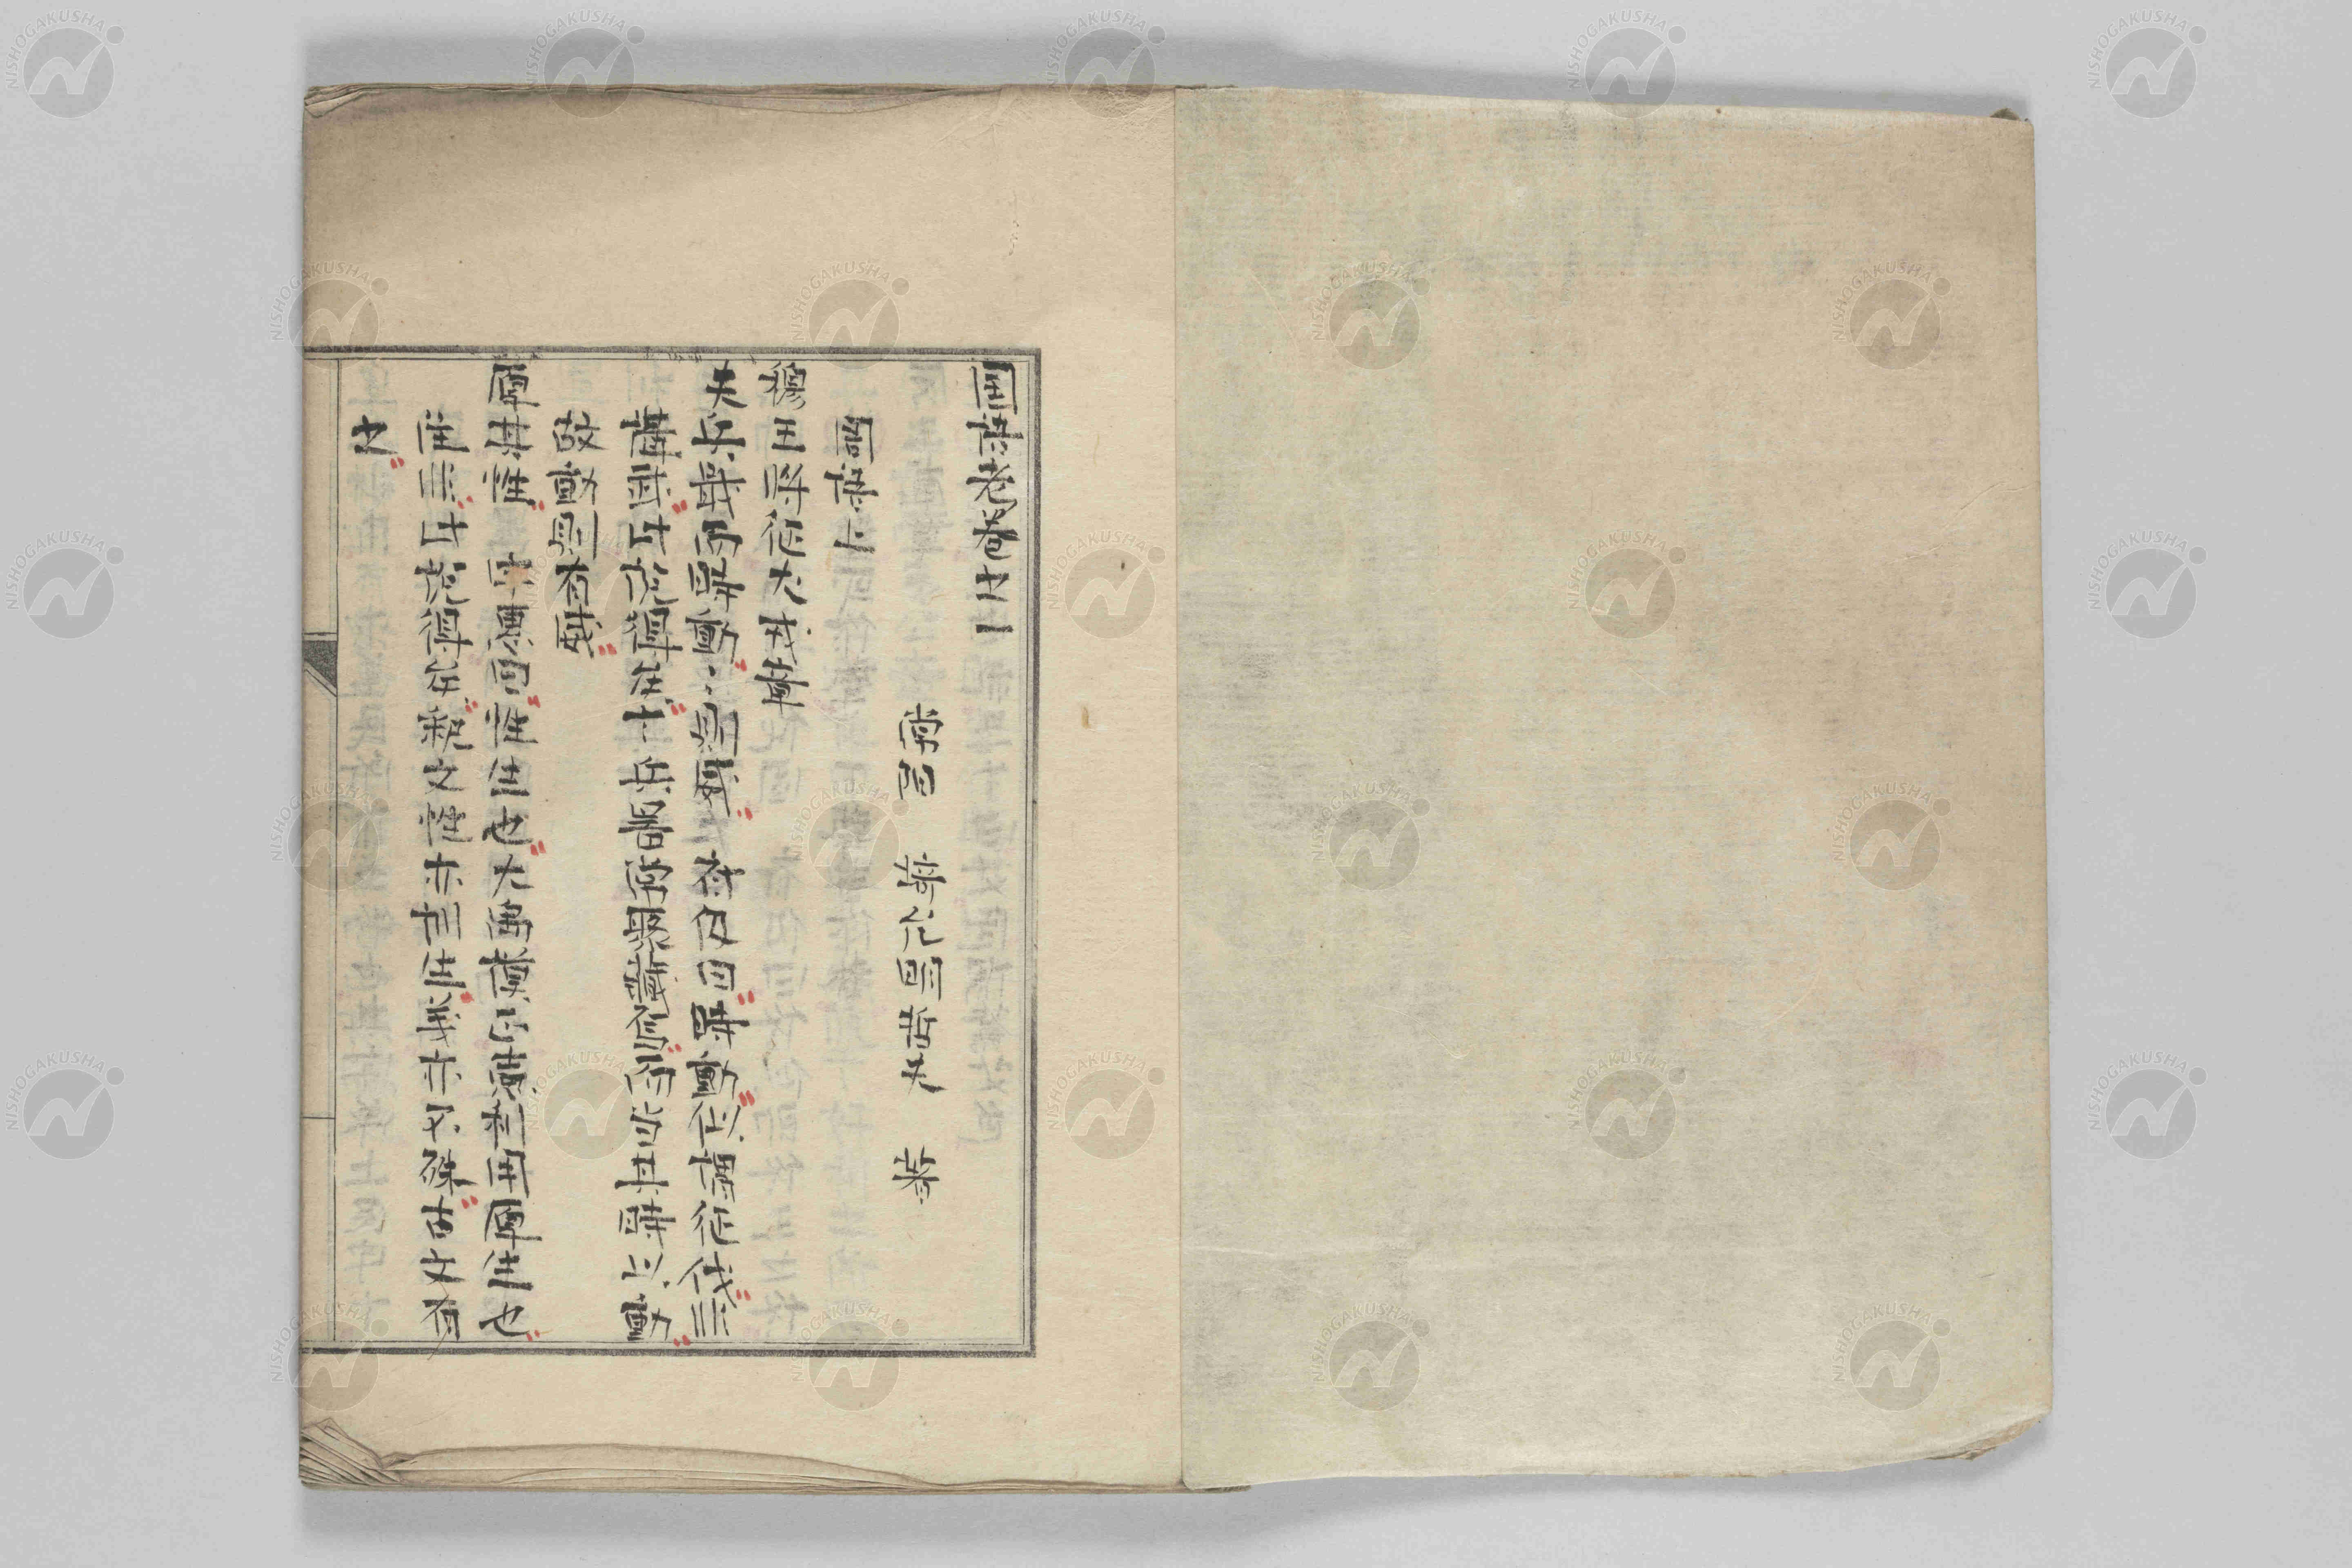 國語考卷之一
常陽 蒋化明哲夫 著
周語上
穆王將征犬戎章
夫兵戢而時動・・則威 存仅曰時動必謂征伐非
講武且於得失十兵器常聚藏焉而当其時以動
故動則有威
厚其性 存慮曰性生也大禹謨正德利用厚生也
性非且於得失親文性亦訓生義亦不殊古文有
之
NISHOGAKUSHA